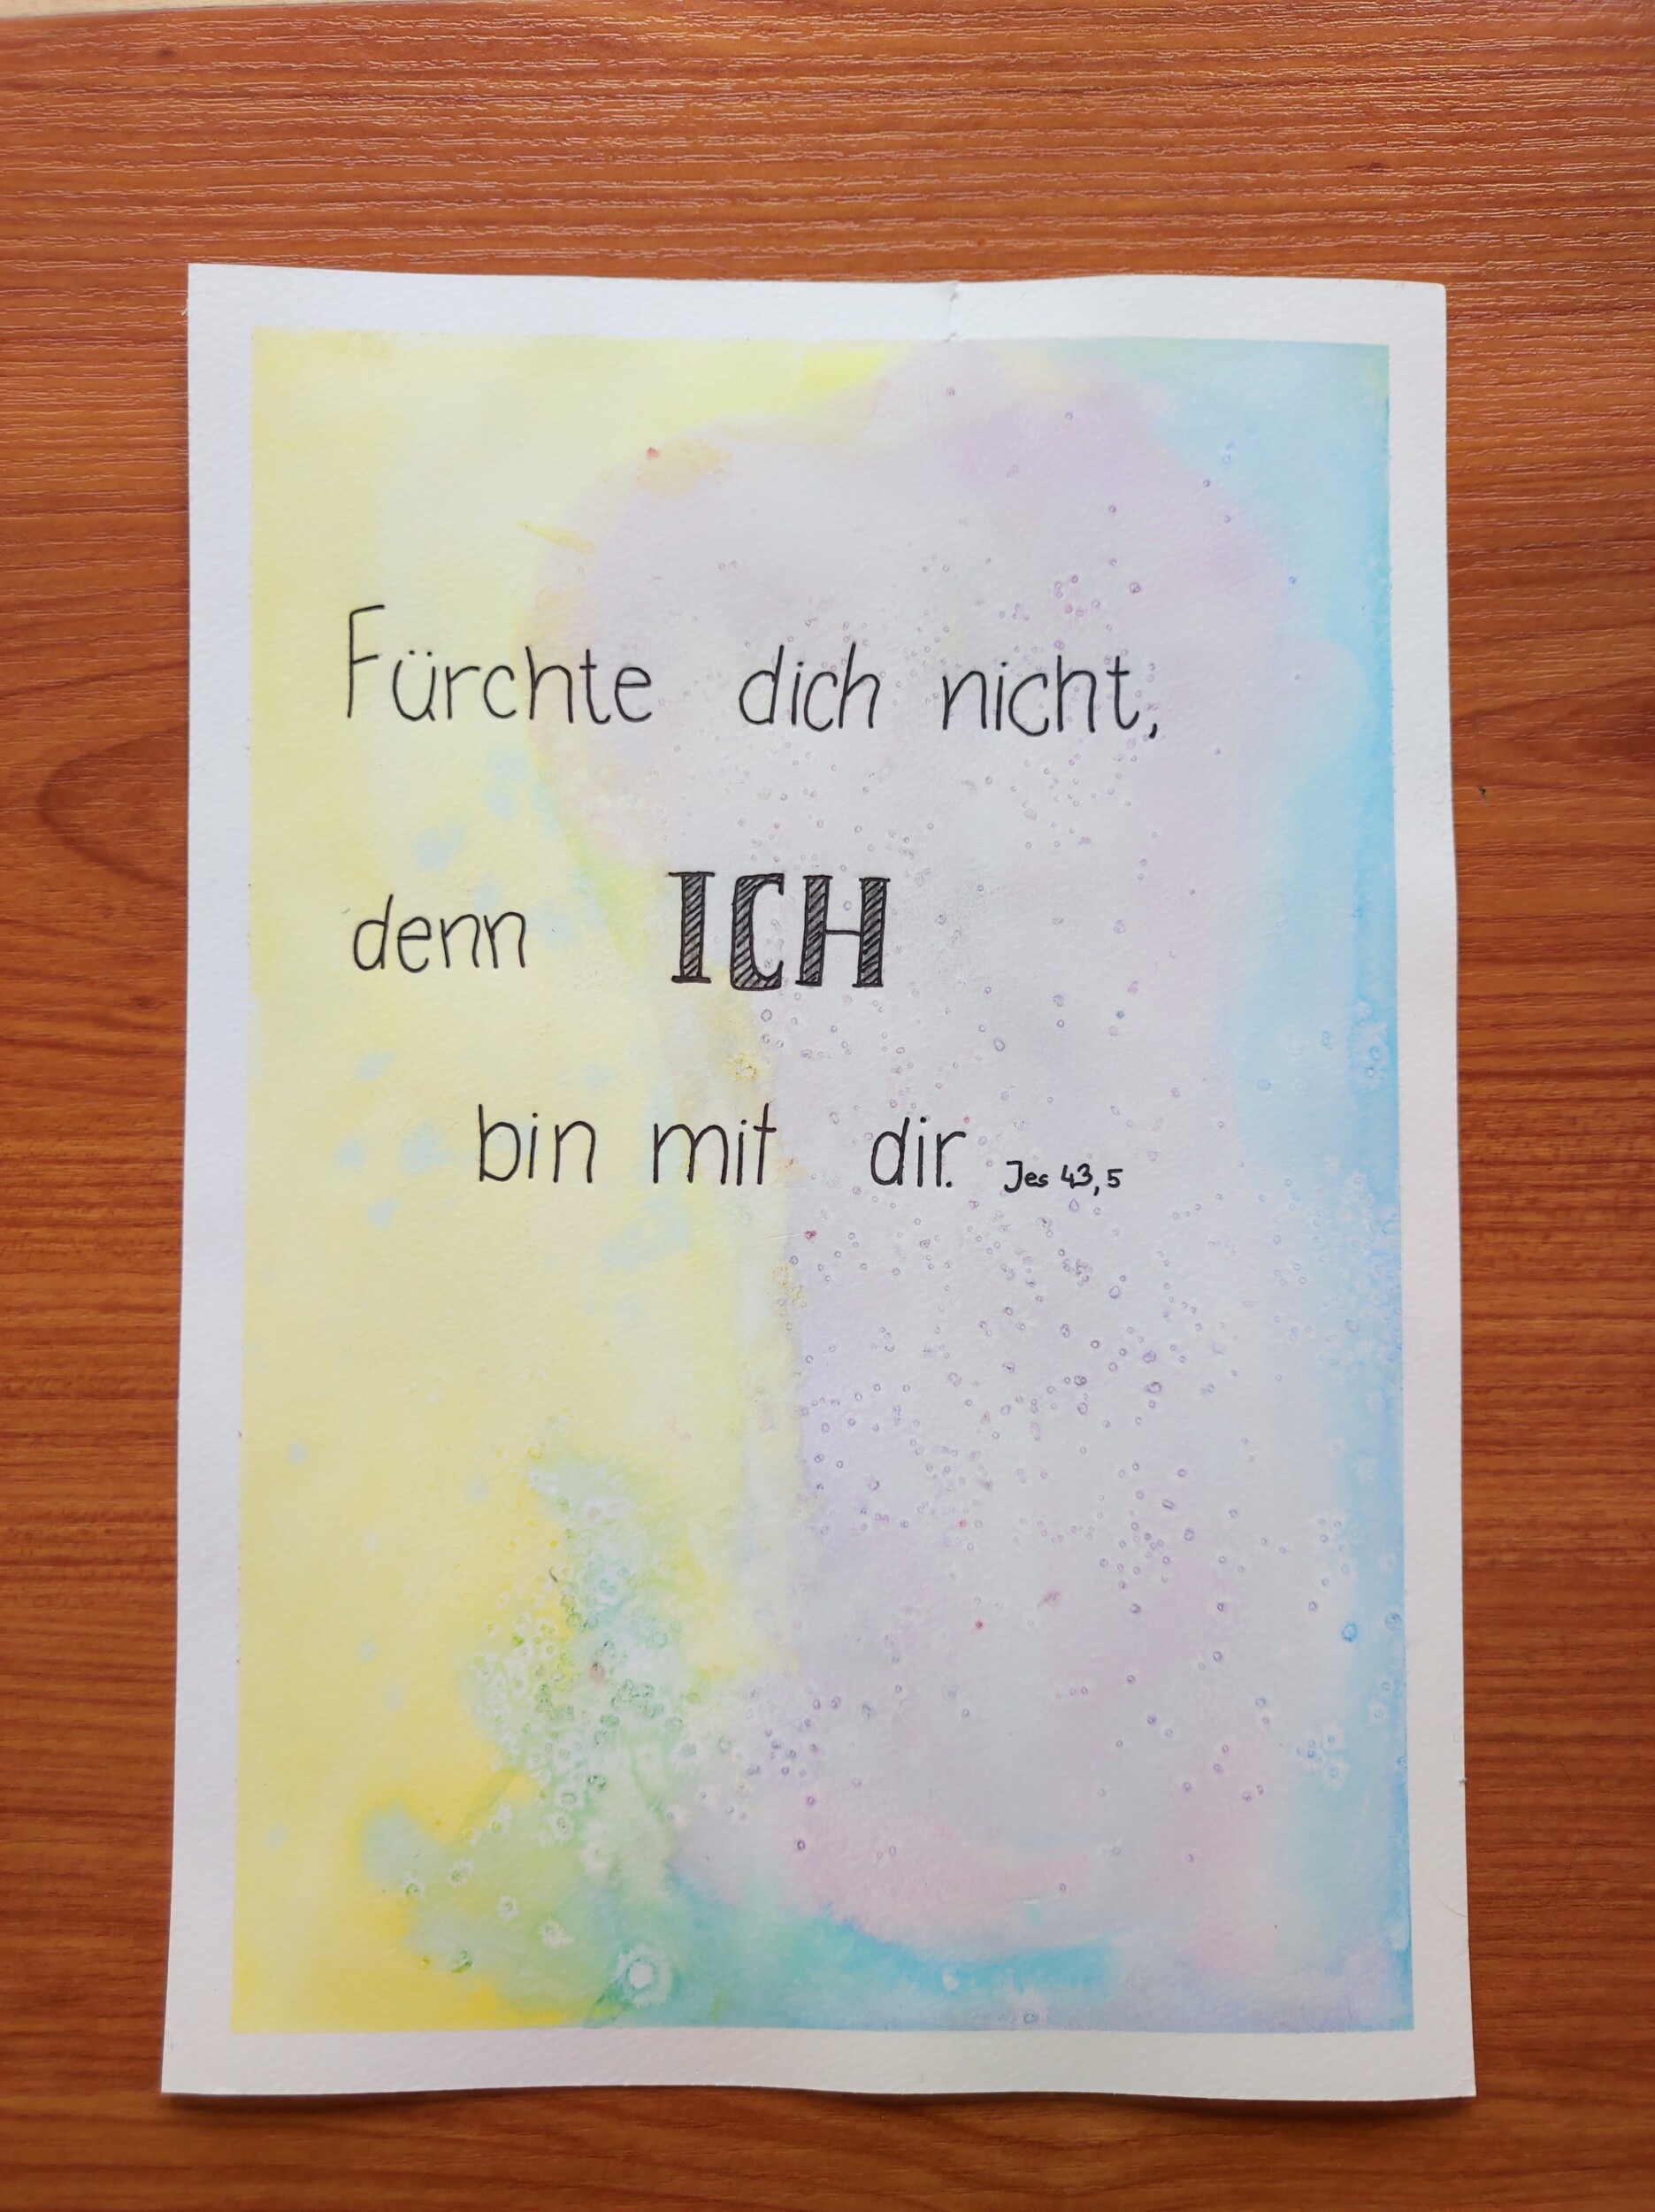 Fürchte dich nicht,
denn ICH
bin mit dir. Jes 43,5